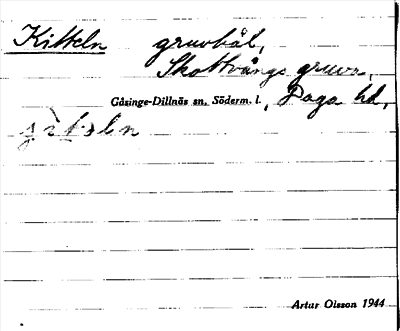 Kitteln gruvhål,
Skottvångs gruva,
Gåsinge-Dillnäs sn. Söderm. l., Daga hd,
Artur Olsson 1944